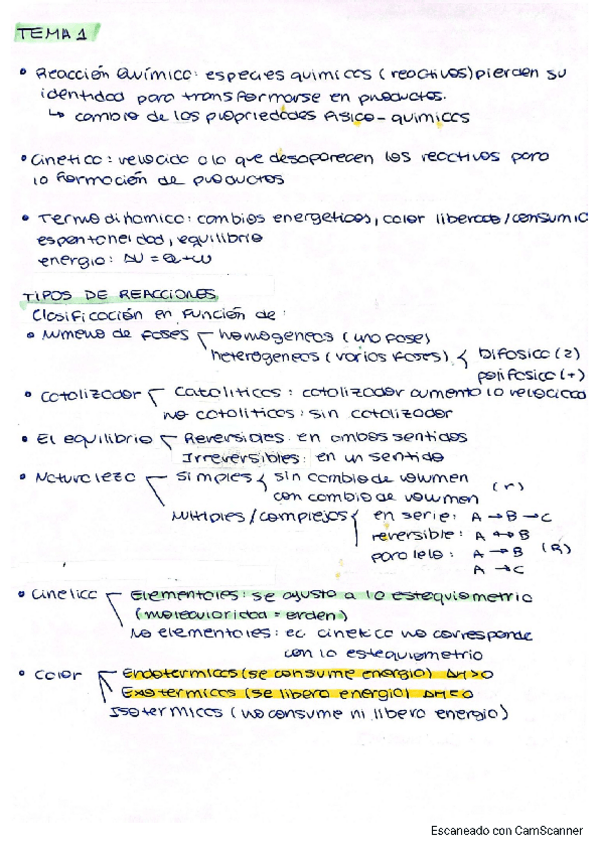 TEMA 1
• Reacción Química: especies quimicas (reactivos) pierden su
identidad para transformarse en productos.
↳ cambio de las propiedades fisico-quimicas
• Cinetica: velocidad a la que desaparecen los reactivos para
la formación de productos
• Termodinamica: cambios energeticos, calor liberado/consumid
espontaneidad, equilibrio
energia: ΔU = Q+W
TIPOS DE REACCIONES
Clasificación en función de:
• Numero de fases homogeneas (una fase)
heterogeneas (varias fases) bifasica (2)
polifasica (+)
• Catalizador Cataliticas: catalizador aumenta la velocidad
no cataliticas: sin catalizador
• El equilibrio Reversibles: en ambos sentidos
Irreversibles: en un sentido
• Naturaleza Simples sin cambio de volumen
con cambio de volumen (r)
Multiples/complejas en serie: A → B → C
reversible: A ↔ B
paralela: A → B (R)
A → C
• Cinetica Elementales: se ajusta a la estequiometria
(molecularidad = orden)
No elementales: ec cinetica no corresponde
con la estequiometria
• Calor Endotermicas (se consume energia) ΔH>0
Exotermicas (se libera energia) ΔH<0
Isotermicas (no consume ni libera energia)
Escaneado con CamScanner